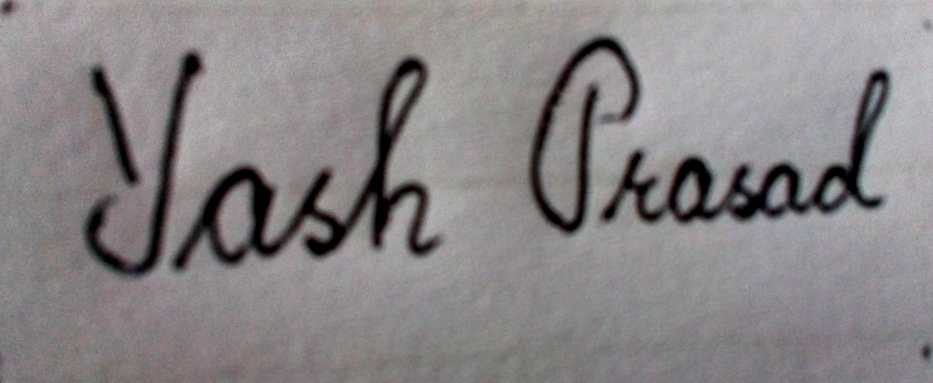 Yash Prasad